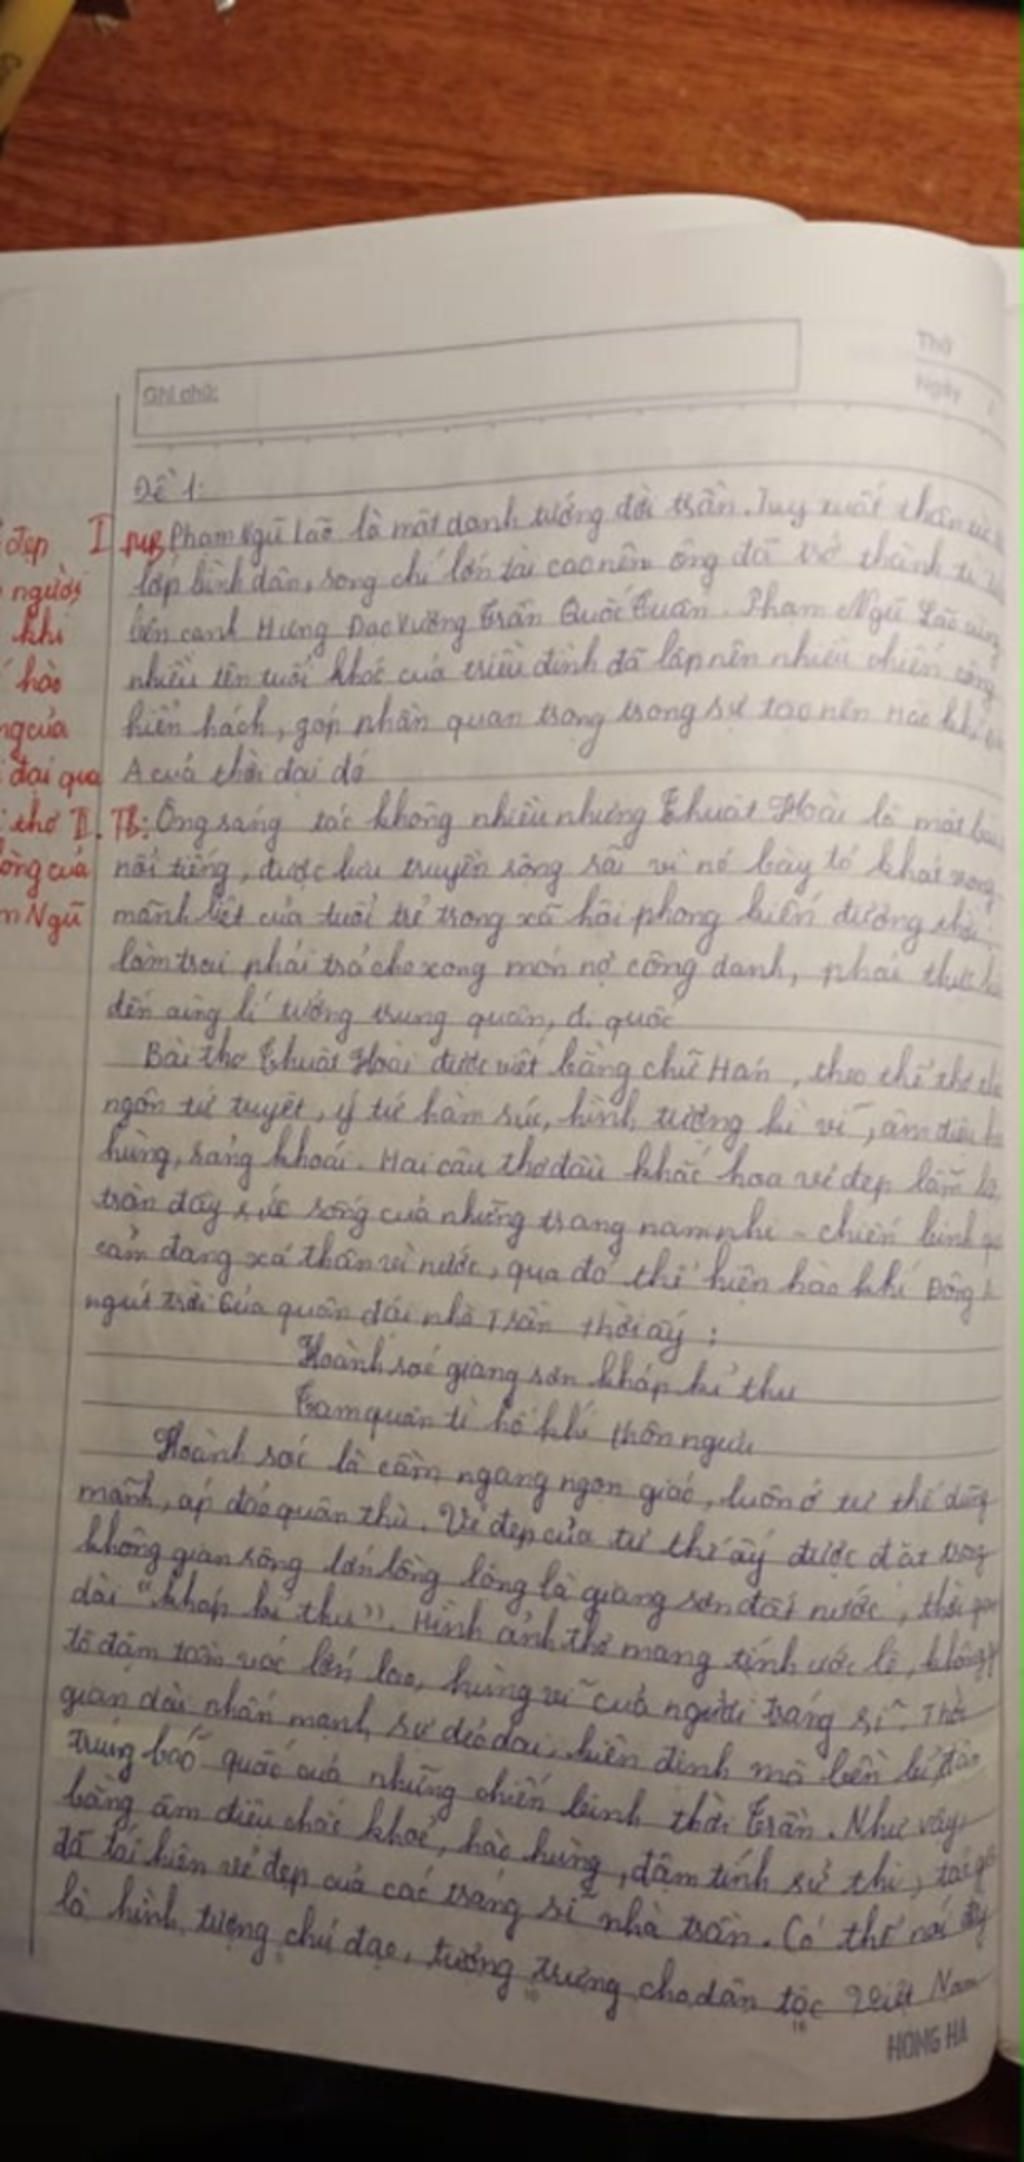 Ghi chú:
Thứ
Ngày
Đề 1:
đẹp
người
khi
hào
ngcủa
đại qua
thơ
òng của
m Ngũ
I MB Phạm Ngũ Lão là một danh tướng đời trần. Tuy xuất thân từ
lớp bình dân, song chí lớn tài cao nên ông đã trở thành tì
bên cạnh Hưng Đạo Vương Trần Quốc Tuấn. Phạm Ngũ Lão cùng
nhiều tên tuổi khác của triều đình đã lập nên nhiều chiến công
hiển hách, góp phần quan trọng trong sự tạo nên Hào khí
A của thời đại đó
II. TB: Ông sáng tác không nhiều nhưng Thuật Hoài là một bài
nổi tiếng, được lưu truyền rộng rãi vì nó bày tỏ khát vọng
mãnh liệt của tuổi trẻ trong xã hội phong kiến đương thời:
làm trai phải trả cho xong món nợ công danh, phải thực
đến cùng lí tưởng trung quân, ái quốc
Bài thơ Thuật Hoài được viết bằng chữ Hán, theo thể thơ
ngôn tứ tuyệt, ý tứ hàm súc, hình tượng kì vĩ, âm điệu
hùng, sảng khoái. Hai câu thơ đầu khắc hoạ vẻ đẹp lẫm
tràn đầy sức sống của những trang nam nhi - chiến binh
cảm đang xả thân vì nước, qua đó thể hiện hào khí Đông
ngút trời của quân đội nhà Trần thời ấy:
Hoành sóc giang sơn kháp kỉ thu
Tam quân tì hổ khí thôn ngưu
Hoành sóc là cầm ngang ngọn giáo, luôn ở tư thế dũng
mãnh, áp đảo quân thù. Vẻ đẹp của tư thế ấy được đặt trong
không gian rộng lớn lồng lộng là giang sơn đất nước, thời gian
dài "kháp kỉ thu". Hình ảnh thơ mang tính ước lệ, không
tô đậm tầm vóc lớn lao, hùng vĩ của người tráng sĩ. Thời
gian dài nhấn mạnh sự dẻo dai, kiên định mà bền bỉ,
trung báo quốc của những chiến binh thời Trần. Như vậy,
bằng âm điệu chắc khoẻ, hào hùng, đậm tính sử thi, tác giả
đã tái hiện vẻ đẹp của các tráng sĩ nhà trần. Có thể nói đây
là hình tượng chủ đạo, tượng trưng cho dân tộc Việt Nam
HỒNG HÀ